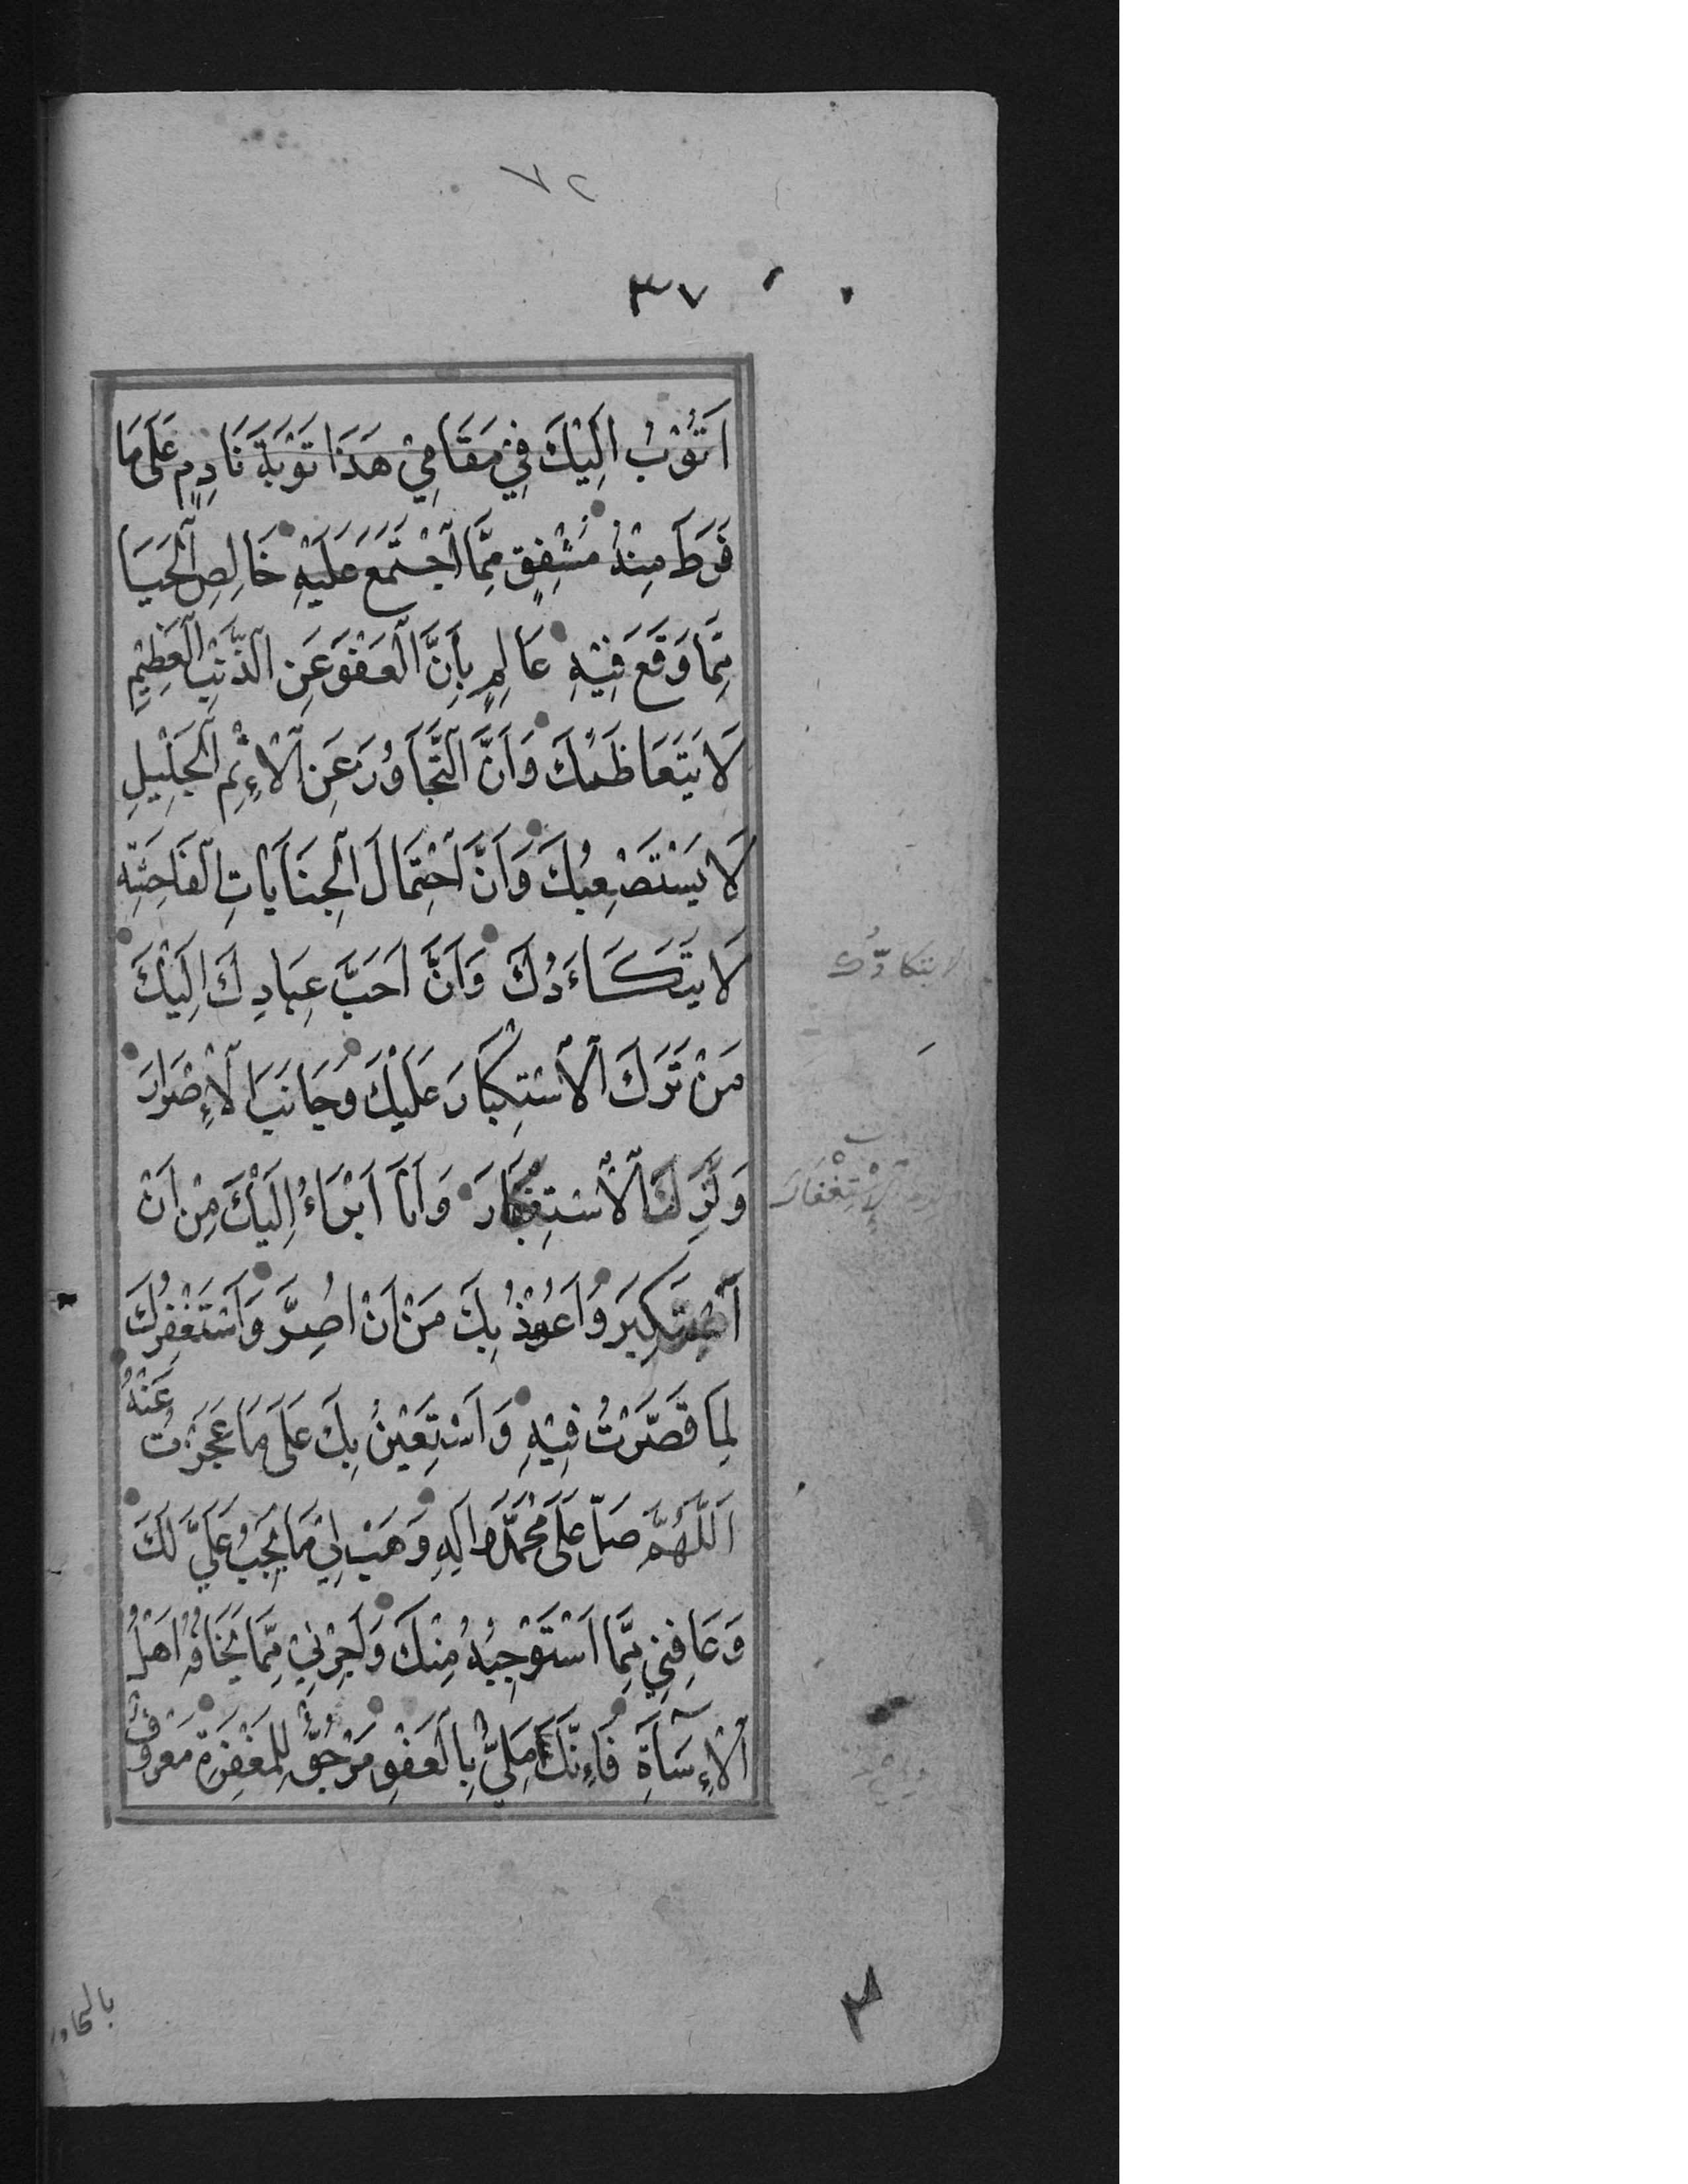 ٧٢
٣٧
اَتُوْبُ اِلَيْكَ فِيْ مَقَامِيْ هَذَا تَوْبَةَ نَادِمٍ عَلَى مَا
فَرَطَ مِنْهُ مُشْفِقٍ مِمَّا اجْتَمَعَ عَلَيْهِ خَالِصِ الْحَيَا
مِمَّا وَقَعَ فِيْهِ عَالِمٍ بِاَنَّ الْعَفْوَ عَنِ الذَّنْبِ الْعَظِيْمِ
لَا يَتَعَاظَمُكَ وَاَنَّ التَّجَاوُزَ عَنِ الْاِثْمِ الْجَلِيْلِ
لَا يَسْتَصْعِبُكَ وَاَنَّ احْتِمَالَ الْجِنَايَاتِ الْفَاحِشَةِ
لَا يَتَكَاءَدُكَ وَاَنَّ اَحَبَّ عِبَادِكَ اِلَيْكَ
لا يتكادّك
مَنْ تَرَكَ الْاسْتِكْبَارَ عَلَيْكَ وَجَانَبَ الْاِصْرَارَ
وَلَزِمَ الْاسْتِغْفَارَ وَاَنَا اَبْرَاءُ اِلَيْكَ مِنْ اَنْ
الْاِسْتِغْفَارَ
اَسْتَكْبِرَ وَاَعُوْذُ بِكَ مَنْ اَنْ اُصِرَّ وَاَسْتَغْفِرُكَ
لِمَا قَصَّرْتُ فِيْهِ وَاَسْتَعِيْنُ بِكَ عَلَى مَا عَجَزْتُ عَنْهُ
اَللَّهُمَّ صَلِّ عَلَى مُحَمَّدٍ وَاٰلِهِ وَهَبْ لِيْ مَا يَجِبُ عَلَيَّ لَكَ
وَعَافِنِيْ مِمَّا اَسْتَوْجِبُهُ مِنْكَ وَاَجِرْنِيْ مِمَّا يَخَافُهُ اَهْلُ
الْاِسَآءَةِ فَاِنَّكَ مَلِيٌّ بِالْعَفْوِ مَرْجُوٌّ لِلْمَغْفِرَةِ مَعْرُوْفٌ
بالتجاوز